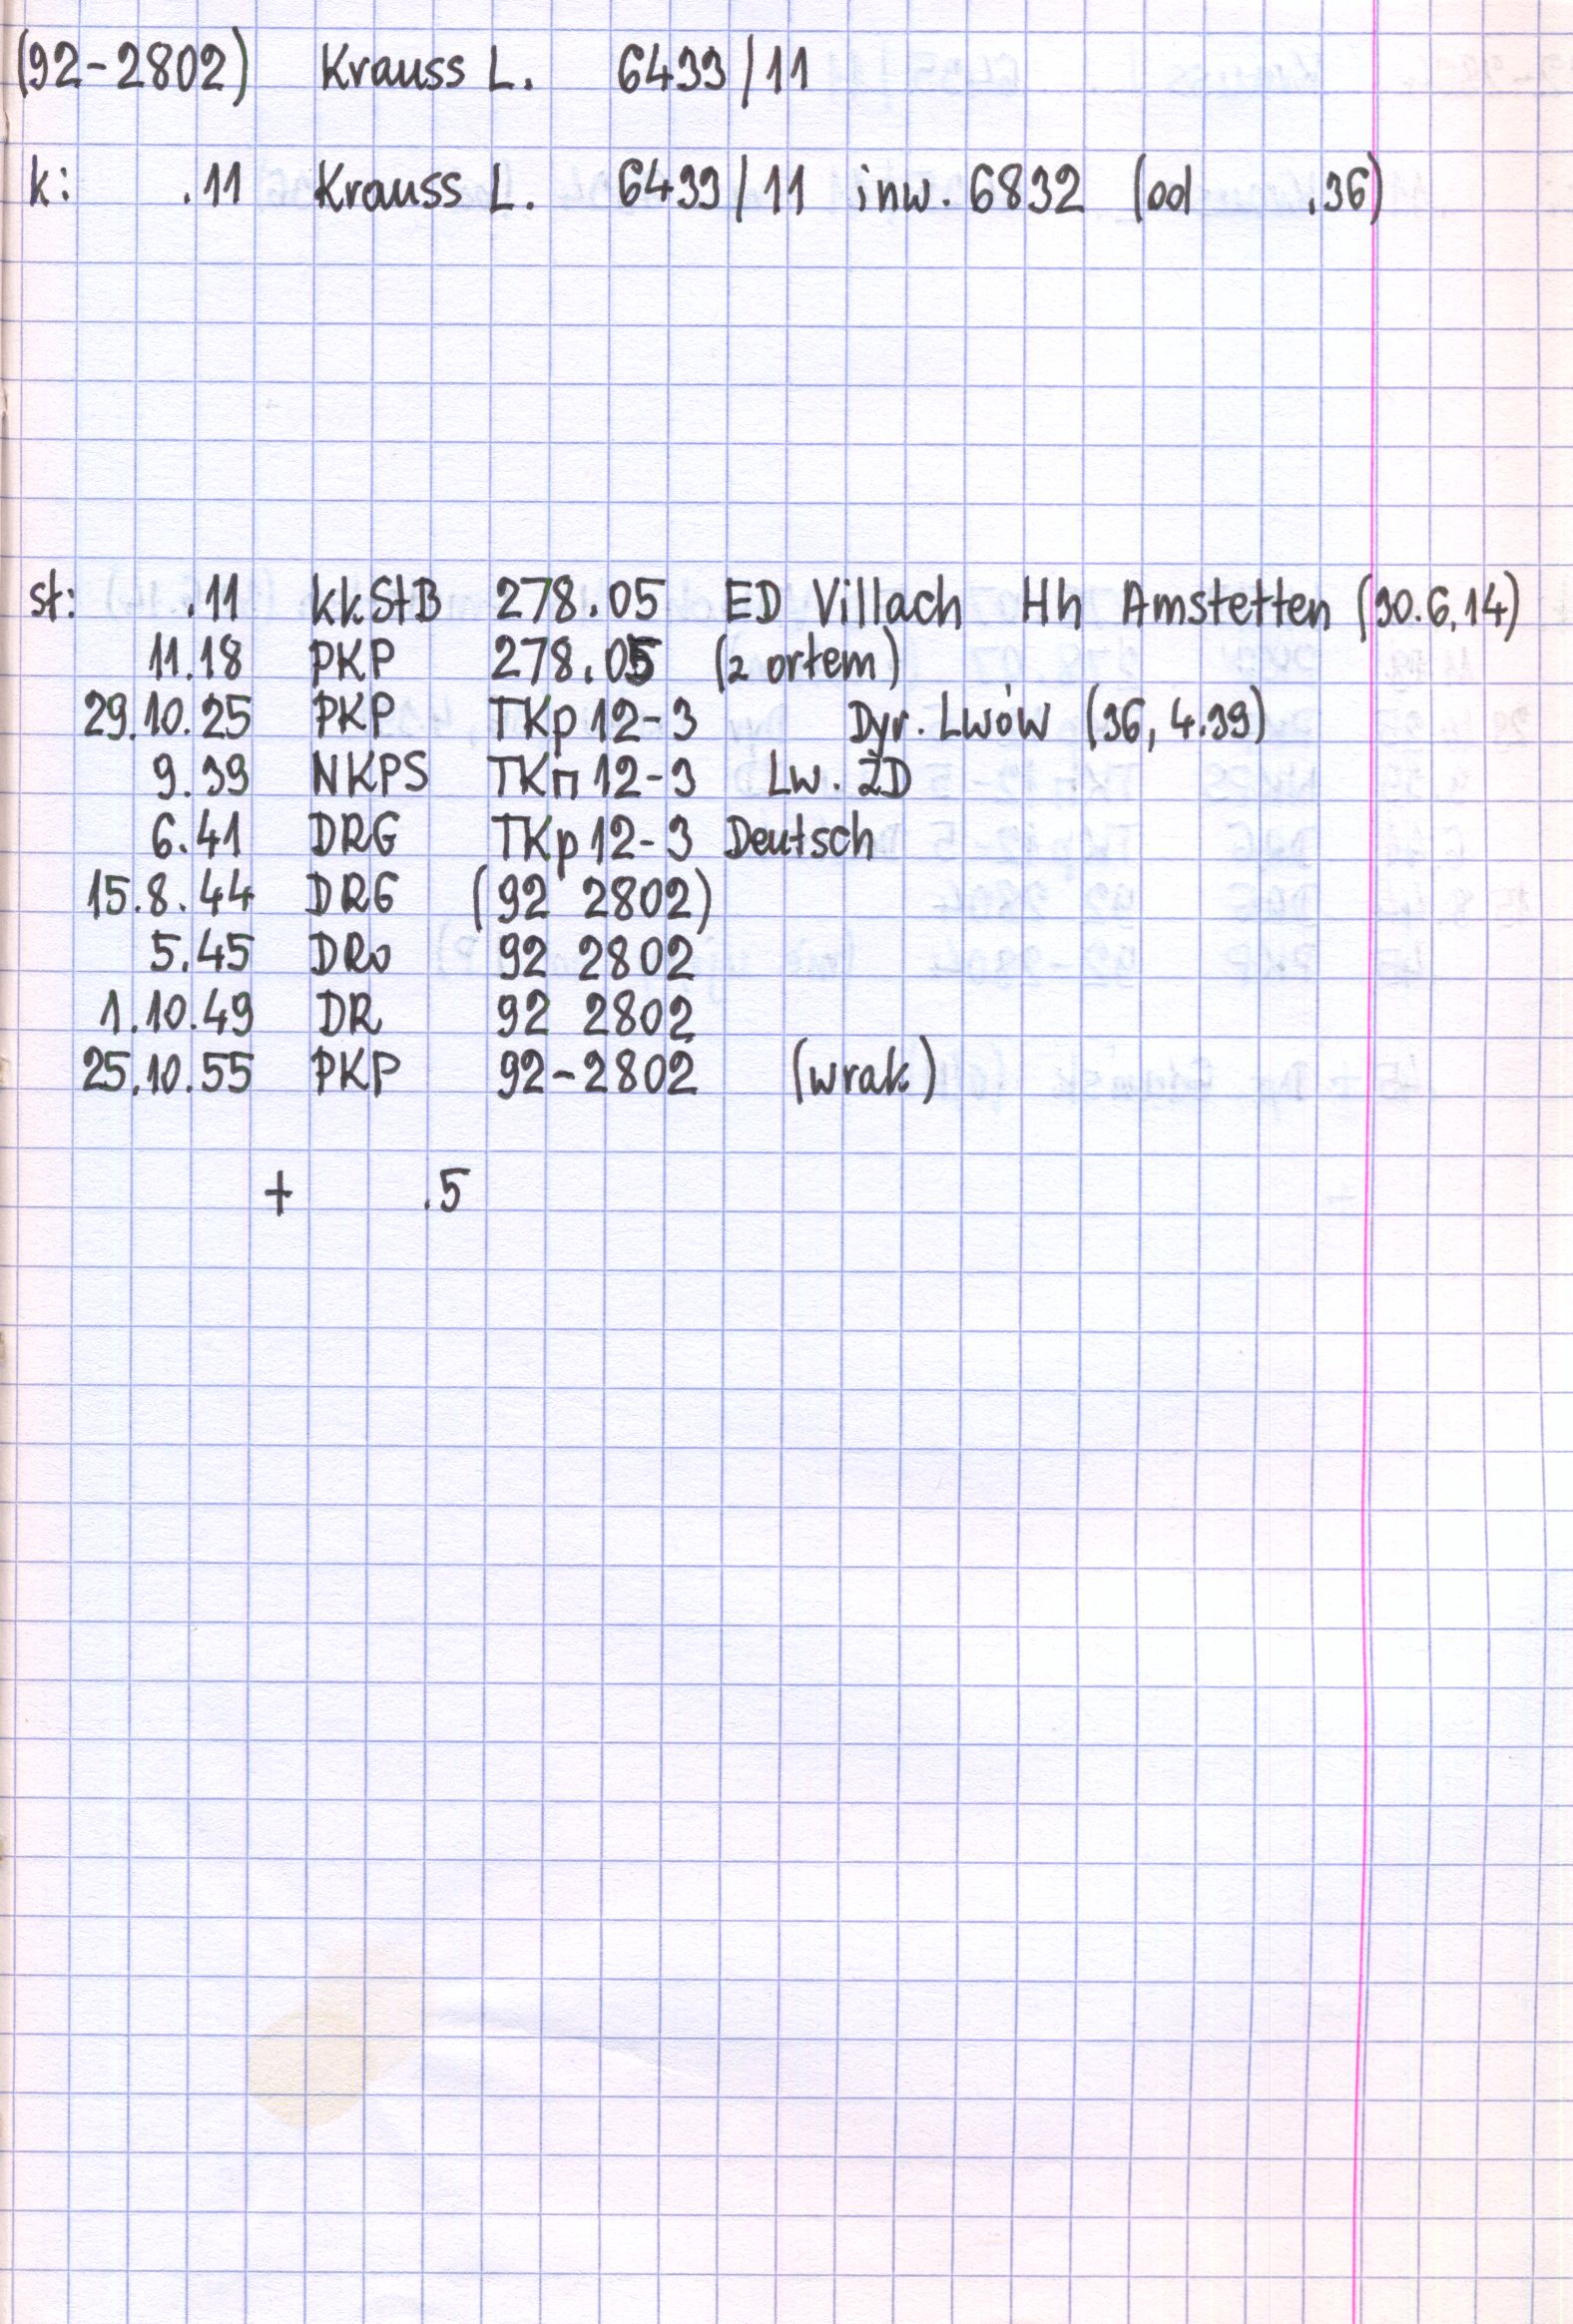 (92-2802) Krauss L. 6433/11
k: .11 Krauss L. 6433/11 inw. 6832 (od .36)
st: .11 kkStB 278.05 ED Villach Hh Amstetten (30.6.14)
11.18 PKP 278.05 (z orłem)
29.10.25 PKP TKp12-3 Dyr. Lwów (36, 4.39)
9.39 NKPS ТКп12-3 Lw. ŻD
6.41 DRG TKp12-3 Deutsch
15.8.44 DRG (92 2802)
5.45 DRo 92 2802
1.10.49 DR 92 2802
25.10.55 PKP 92-2802 (wrak)
+ .5